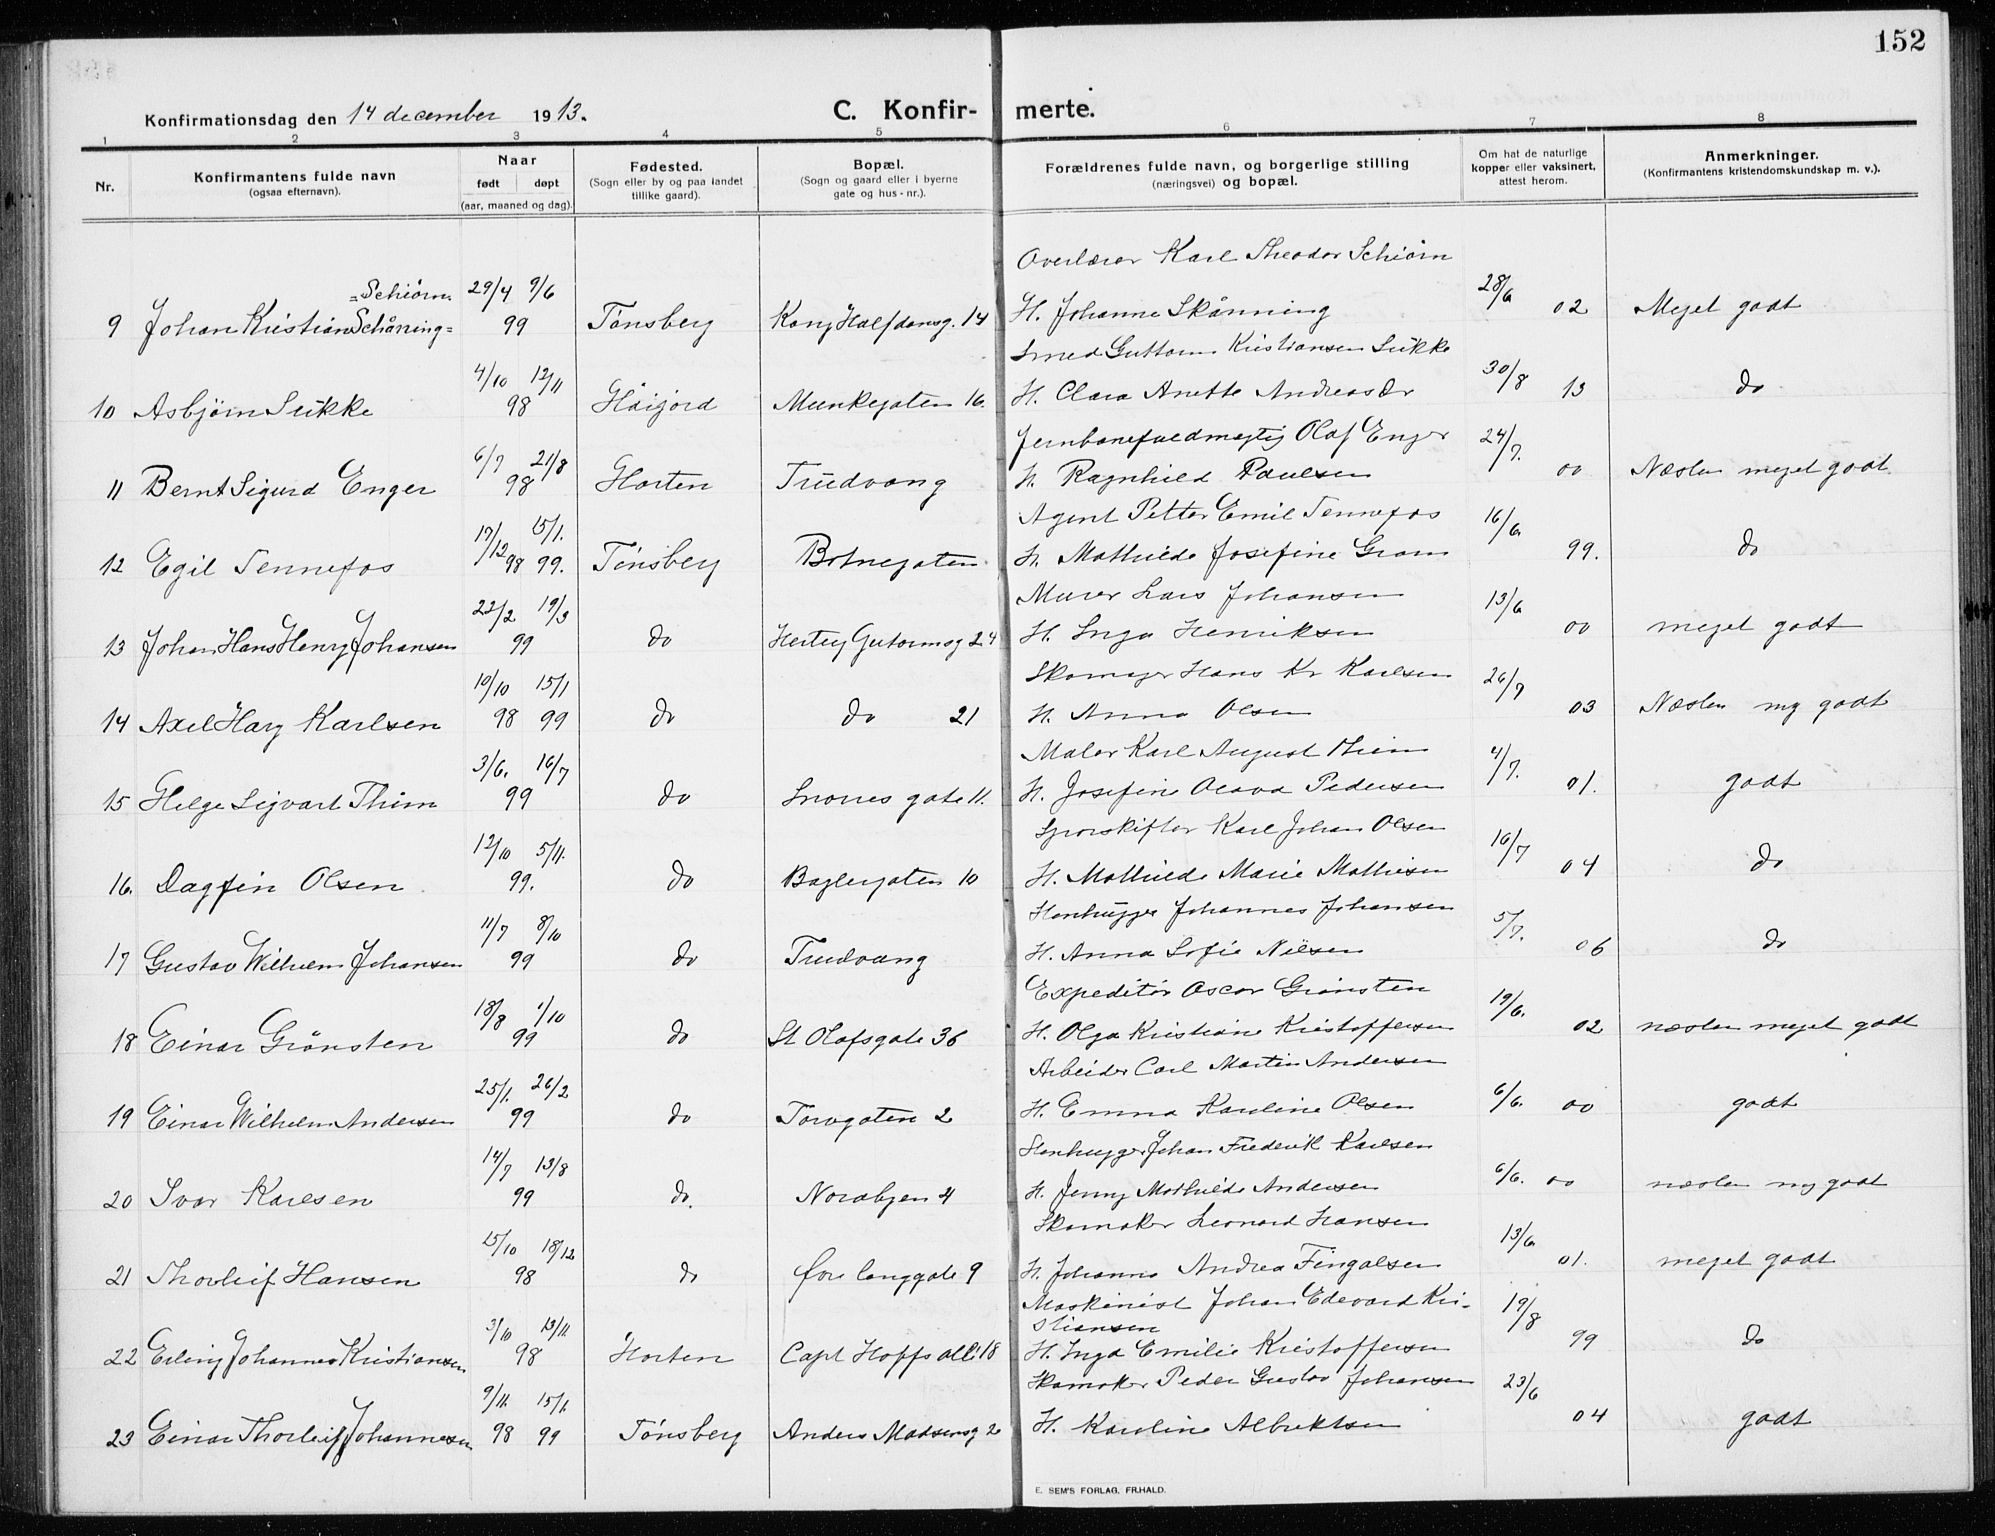 152
Konfirmationsdag den 14 december 1913.
C. Konfirmerte.
1 2 3 4 5 6 7 8
Nr.
Konfirmantens fulde navn
(ogsaa efternavn).
Naar
født døpt
(aar, maaned og dag).
Fødested.
(Sogn eller by og paa landet
tillike gaard).
Bopæl.
(Sogn og gaard eller i byerne
gate og hus-nr.).
Forældrenes fulde navn, og borgerlige stilling
(næringsvei) og bopæl.
Om hat de naturlige
kopper eller vaksinert,
attest herom.
Anmerkninger.
(Konfirmantens kristendomskundskap m. v.).
Overlærer Karl Theodor Schiörn
=Schiörn= 29/4 9/6 28/6
9 Johan Kristian Schånning= 99 Tönsberg Kong Halfdansg. 14 H. Johanne Skånning 02 Meget godt
Smed Guttorm Kristiansen Sukke
4/10 12/11 30/8
10 Asbjörn Sukke 98 Håigjord Munkegaten 16. H. Clara Anette Andreasdr 13 do
Jernbanefuldmegtig Olaf Enger
6/7 21/8 24/7.
11 Bernt Sigurd Enger 98 Horten Trudvang H. Ragnhild Paulsen 00 Næsten meget godt
Agent Petter Emil Tennefos
17/12 15/1. 16/6.
12 Egil Tennefos 98 99. Tönsberg Botnegaten H. Mathilde Josefine Gram 99. do
Murer Lars Johansen
22/2 19/3 13/6
13 Johan Hans Henry Johansen 99 do Hertug Gutormsg 24 H. Inga Henriksen 00 meget godt
Skomager Hans Kr Karlsen
10/10 15/1 26/7
14 Axel Hary Karlsen 98 99 do do 21 H. Anna Olsen 03 Næsten mg godt
Maler Karl August Thim
3/6. 16/7 4/7.
15 Helge Sigvart Thim 99 do Snorres gate 11. H. Josefine Olava Pedersen 01. godt
Sporskifter Karl Johan Olsen
12/10 5/11. 16/7
16. Dagfin Olsen 99. do Baglergaten 10 H. Mathilde Marie Mathisen 04 do
Stenhugger Johannes Johansen
11/7 8/10 5/7.
17 Gustav Wilhelm Johansen 99 do Trudvang H. Anna Sofie Nilsen 06 do
Expeditör Oscar Grönsten
18/8 1/10 19/6.
18 Einar Grönsten 99 do St Olafsgate 36 H. Olga Kristiane Kristoffersen 02 næsten meget godt
Arbeider Carl Martin Andersen
25/1. 26/2
19 Einar Wilhelm Andersen 99 do Torvgaten 2 H. Emma Karoline Olsen 6/6. 00 godt
Stenhugger Johan Frederik Karlsen
14/7 13/8
20 Ivar Karlsen 99 do. Norabyen 4 H. Jenny Mathilde Andersen 6/6. 00 næsten mg godt
Skomaker Leonard Hansen
15/10 18/12 13/6.
21 Thorleif Hansen 98 do före langgate 9 H. Johanne Andrea Fingalsen 01. meget godt
Maskinist Johan Edevard Kri-
stiansen
3/10 13/11. 19/8
22 Erling Johannes Kristiansen 98 Horten Capt Hoffs all. 18 H. Inga Emilie Kristoffersen 99 do
Skomaker Peder Gustav Johansen
9/11. 15/1. 23/6
23 Einar Thorleif Johannesen 98 99 Tönsberg Anders Madsensg 2 H. Karoline Albrektsen 04 godt
E. SEM'S FORLAG, FR.HALD.